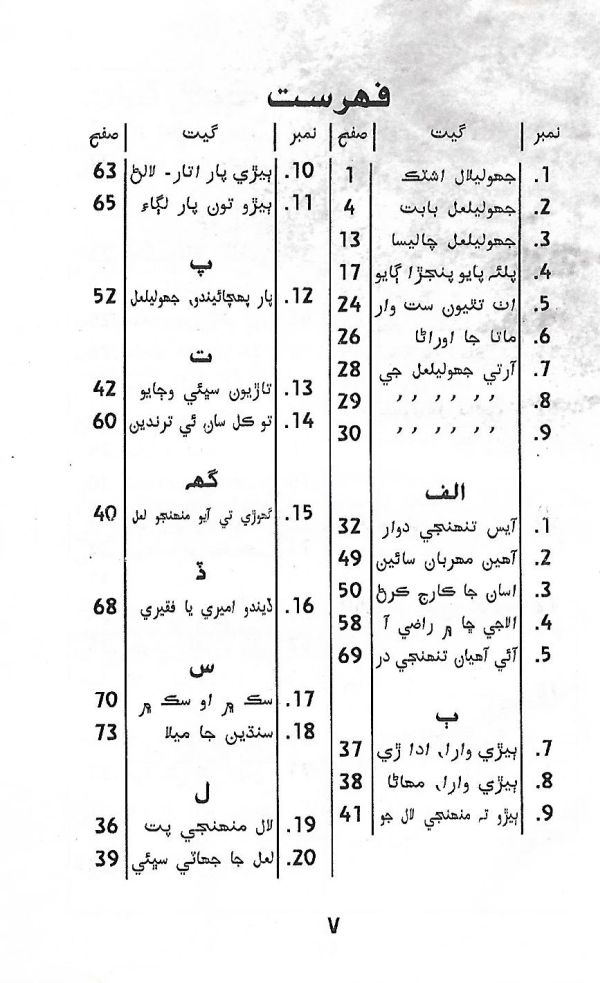 فهرست
نمبر | گيت | صفحو
1. جھوليلال اشٽڪ 1
2. جھوليلعل بابت 4
3. جھوليلعل چاليسا 13
4. پلئہ پايو پنجڙا ڳايو 17
5. اٺ تٿيون ست وار 24
6. ماتا جا اوراڻا 26
7. آرتي جھوليلعل جي 28
8. ,, ,, ,, 29
9. ,, ,, ,, 30
الف
1. آيس تنھنجي دوار 32
2. آھين مھربان سائين 49
3. اسان جا ڪارج ڪرڻ 50
4. الاجي ڇا ۾ راضي آ 58
5. آئي آھيان تنھنجي در 69
ٻ
7. ٻيڙي وارا، ادا ڙي 37
8. ٻيڙي وارا، مھاڻا 38
9. ٻيڙو تہ منھنجي لال جو 41
نمبر | گيت | صفحو
10. ٻيڙي پار اتار - لالڻ 63
11. ٻيڙو تون پار لڳاءِ 65
پ
12. پار پھچائيندو، جھوليلعل 52
ت
13. تاڙيون سڀئي وڄايو 42
14. توڪل سان ئي ترندين 60
گھ
15. گھوڙي تي آيو منھنجو لعل 40
ڏ
16. ڏيندو اميري يا فقيري 68
س
17. سڪ ۾ او سڪ ۾ 70
18. سنڌين جا ميلا 73
ل
19. لال منھنجي پت 36
20. لعل جا جھاتي سڀئي 39
٧